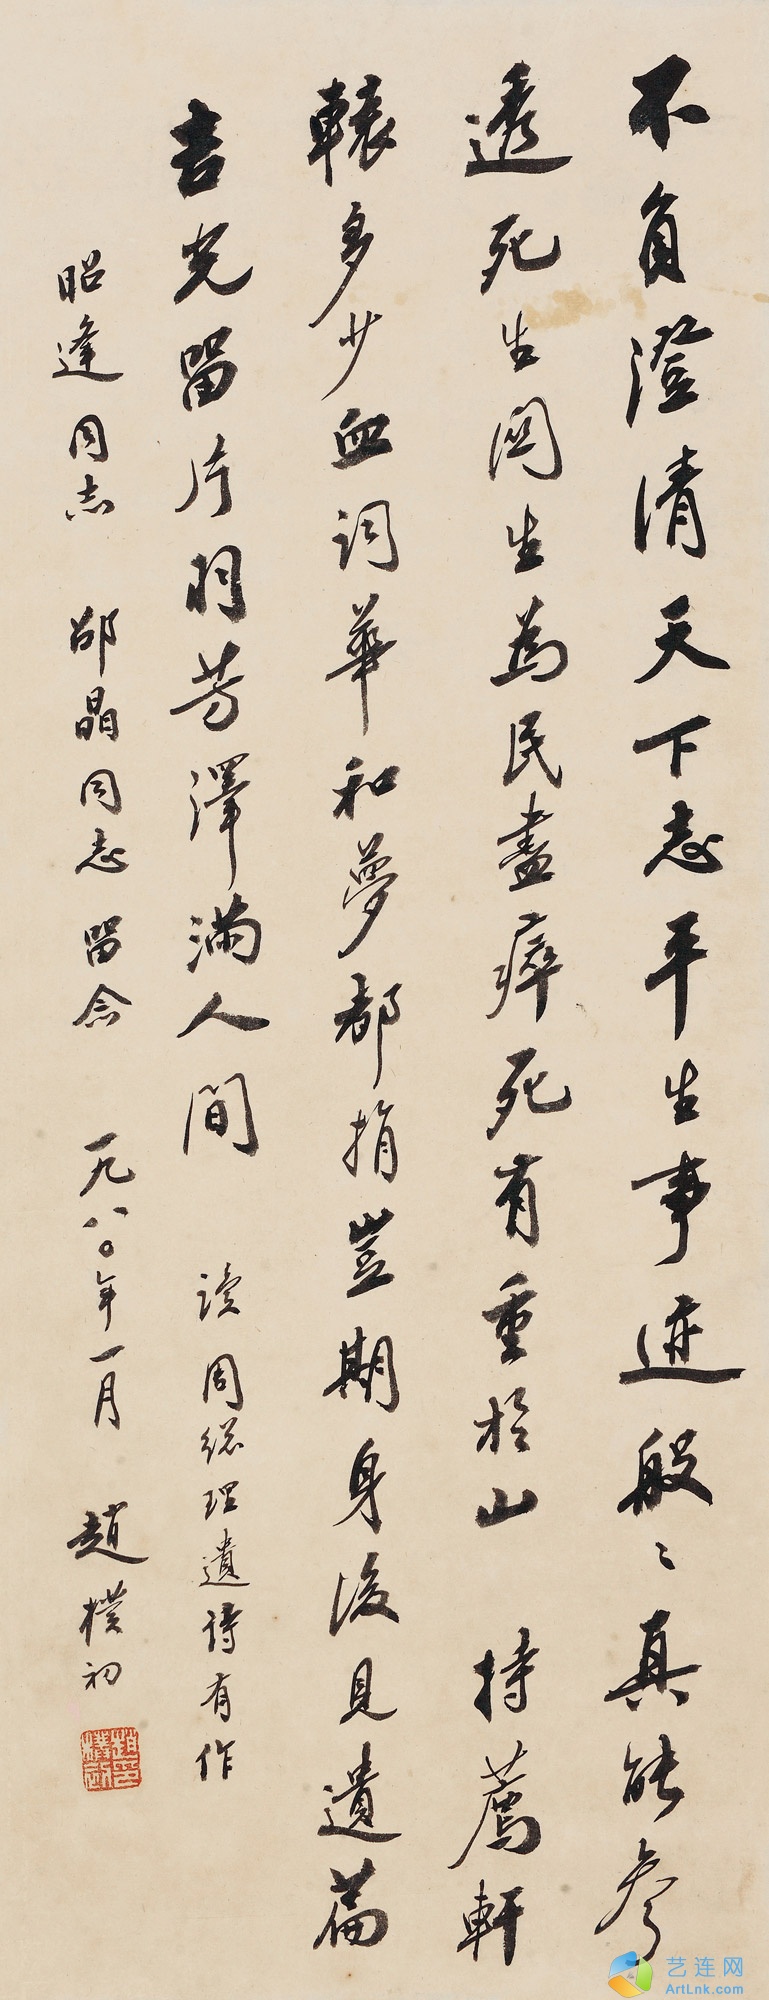 不负澄清天下志平生事迹般々真能参
透死生関生为民盡瘁死有重於山　持薦軒
轅多少血詞華和夢都捐豈期身後見遺篇
吉光留片羽芳澤满人間　读周總理遺詩有作
昭逢同志　邵晶同志留念　一九八〇年一月　趙樸初
趙樸初印
艺连网
ArtLnk.com